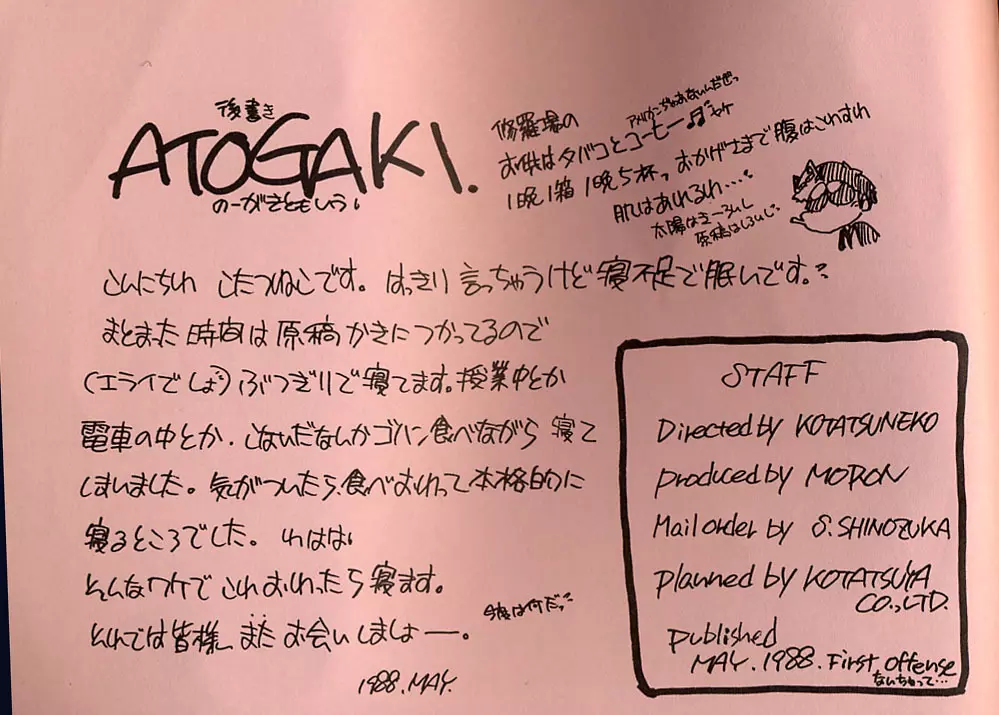 後書き
ATOGAKI.
のーがきともいう。
修羅場の
お供はタバコとコーヒー♬
アメリカンじゃあないんだぜっ
1晩1箱 1晩5杯っ おかげさまで腹はこわすわ
肌はあれるわ…。
太陽はきーろいし
原稿はしろいし。
こんにちわ こたつねこです。はっきり言っちゃうけど寝不足で眠いです。
まとまった時間は原稿かきにつかってるので
(エライでしょ)ぶつぎりで寝てます。授業中とか
電車の中とか. こないだなんかゴハン食べながら寝て
しまいました。気がついたら、食べおわって本格的に
寝るところでした。わはは
そんなワケでこれおわったら寝ます。
それでは皆様、またお会いしましょーー。
今度は何だっ
1988.MAY.
STAFF
Directed by KOTATSUNEKO
produced by MORON
Mail order by S.SHINOZUKA
planned by KOTATSUYA
CO.,LTD.
published
MAY.1988.First offense
なんちゃって…